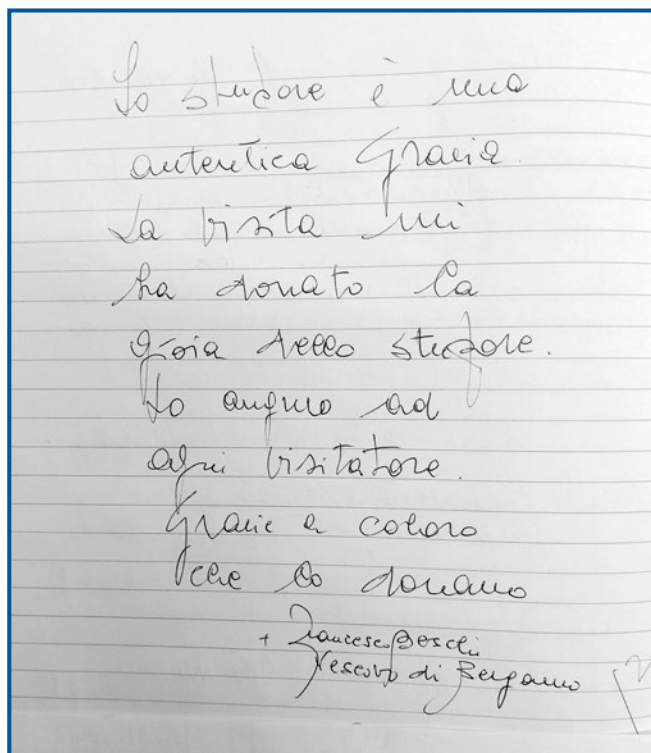 Lo stupore è una
autentica Grazia.
La visita mi
ha donato la
gioia dello stupore.
Lo auguro ad
ogni visitatore.
Grazie a coloro
che lo donano
+ Francesco Beschi
Vescovo di Bergamo